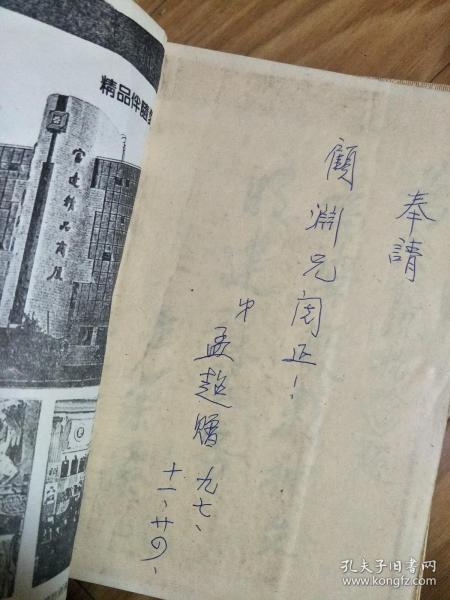 奉請
顧淵兄閱正！
弟
孟超贈 九七、
十一、廿四、
精品伴隨
宝建精品商厦
孔夫子旧书网
www.kongfz.com